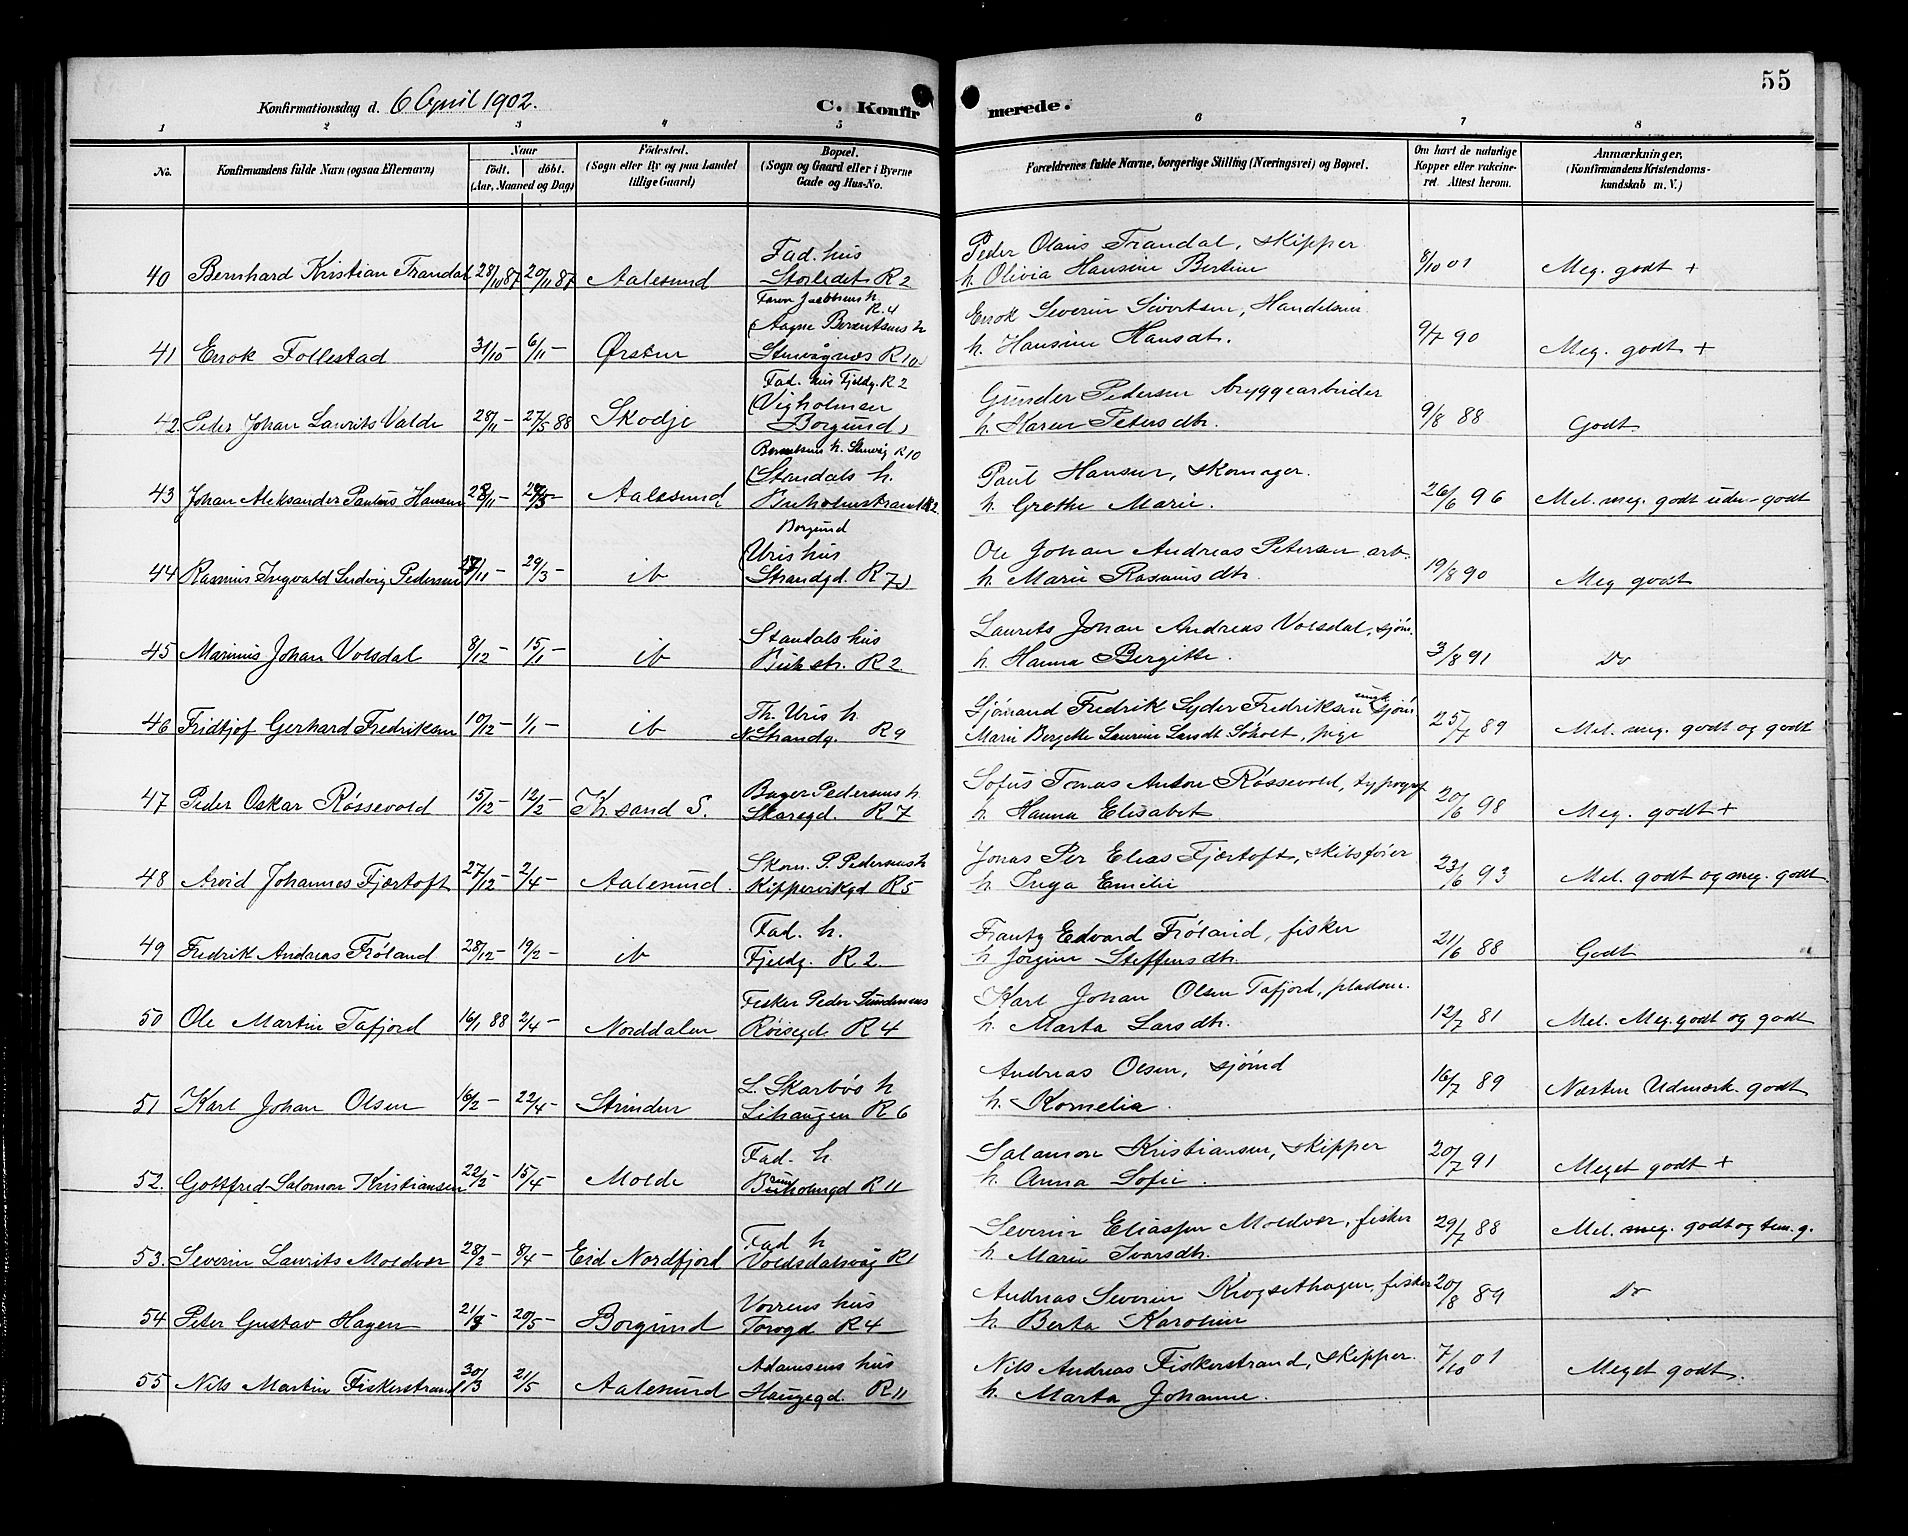 55
Konfirmationsdag d. 6 April 1902.
C. Konfirmerede.
1 2 3 4 5 6 7 8
No.
Konfirmandens fulde Navn (ogsaa Efternavn)
Naar
födt. döbt.
(Aar, Maaned og Dag)
Födested.
(Sogn eller By og paa Landet
tillige Gaard)
Bopæl.
(Sogn og Gaard eller i Byerne
Gade og Hus-No.
Forældrenes fulde Navne, borgerlige Stilling (Næringsvei) og Bopæl.
Om havt de naturlige
Kopper eller vakcine-
ret. Attest herom.
Anmærkninger.
(Konfirmandens Kristendoms-
kundskab m. V.)
Fad. hus
Peder Olaus Trandal, skipper
40 Bernhard Kristian Trandal 28/10 87 20/11 87 Aalesund Storledet R 2 h. Olivia Hansine Bertine 8/10 01 Meg. godt +
R. 4
Aagne Berentsens h
Enok Severin Sivertsen, Handelsm
41 Enok Follestad 31/10 - 6/11 - Ørsten R 10 h. Hansine Hansdt. 9/7 90 Meg. godt +
Fad. hus Fjeldg. R 2
(Vigholmen
Gunder Pedersen bryggearbeider
42 Peder Johan Laurits Valde 28/11 - 27/5 88 Skodje Borgund) h. Karen Petersdtr. 9/8 88 Godt.
R 10
(Standals h.
Paul Hansen, skomager.
43 Johan Aleksander Paulus Hansen 28/11 - Aalesund h. Grethe Marie. 26/6 96 Mel. meg. godt
Borgund
(Uris hus
Ole Johan Andreas Petersen arb.
44 Rasmus Ingvald Ludvig Pedersen 29/3 - ib Strandgd. R 7) h. Marie Rasmusdtr. 19/8 90 Meg godt
Standals hus
Laurits Johan Andreas Volsdal, sjøm.
45 Marinus Johan Volsdal 8/12 - 15/1 - ib R 2 h. Hanna Bergitte. 3/8 91 Do
Th. Uris h
Fredrik Fredriksen sjøm
46 Fridtjof Gerhard Fredriksen 10/12 - 1/1 - ib N Strandg. R 9 Marie Bergitte Laurine Larsdt Søholt, pige 25/7 89 Mel. meg. godt og godt
Bager Pedersens h.
Sofus Tomas Anton Røssevold, typograf
47 Peder Oskar Røssevold 15/12 - 12/2 - Kr. sand S. Skaregd. R 7 h. Hanna Elisabet 20/6 98 Meg. godt +
Skom. P. Pedersens h
Jonas Per Elias Fjærtoft, skibsfører
48 Arvid Johannes Fjærtoft 27/12 - 2/4 - Aalesund. Kippervikgd R 5 h. Inga Emilie 23/6 93 Mel. godt og meg. godt.
Fad. h.
Frantz Edvard Frøland, fisker
49 Fredrik Andreas Frøland 28/12 - 19/2 - ib Fjeldg. R 2. h. Jørgine Steffensdtr. 21/6 88 Godt
Fisker Peder
Karl Johan Olsen Tafjord, pladsm.
50 Ole Martin Tafjord 16/1 88 2/4 - Norddalen Røisegd R 4 h. Marta Larsdtr. 12/7 81 Mel. Meg. godt og godt
L. Skarbøs h
Andreas Olsen, sjømd
51 Karl Johan Olsen 16/2 - 22/4 - Strinden Lihaugen R 6 h. Kornelia. 16/7 89 Næsten Udmærk. godt
Fad. h
Salamon Kristiansen, skipper
52. Gottfred Salomon Kristiansen 22/2 - 15/4 - Molde R 11 h. Anna Sofie. 20/7 91 Meget godt +
Fad h
Severin Eliassen Moldvær, fisker
53. Severin Laurits Moldvær 28/2 - 8/4 - Eid Nordfjord Voldsdalsvåg R 1 h. Marie Ivarsdtr. 29/7 88 Mel. meg. godt og tem. g.
Vorrens hus
Andreas Severin Krogsethagen, fisker
54 Peter Gustav Hagen 21/3 - 20/5 - Borgund Torvgd R 4 h. Berta Karoline 20/8 89 Do
Adamsens hus
Nils Andreas Fiskerstrand, skipper.
55 Nils Martin Fiskerstrand 30/3 21/5 - Aalesund Haugegd. R 11 h. Marta Johanne. 7/10 01 Meget godt.